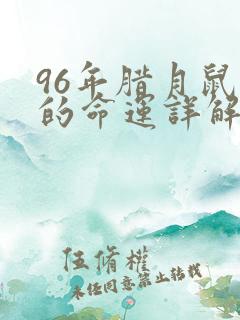 96年腊月鼠
的命运詳解
伍脩權
未经同意禁止转载